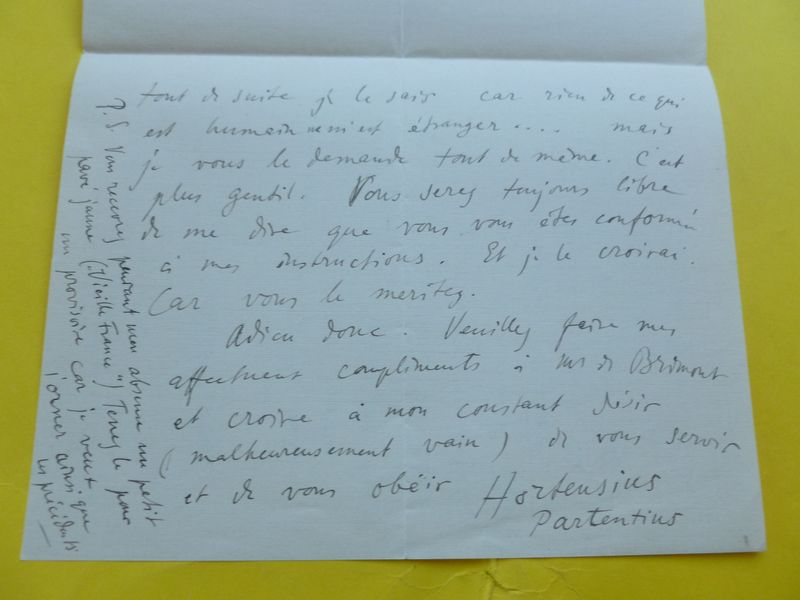 tout de suite je le sais car rien de ce qui
est humain ne m'est étranger.... mais
je vous le demande tout de même. C'est
plus gentil. Vous serez toujours libre
de me dire que vous vous êtes conformé
à mes instructions. Et je le croirai.
Car vous le méritez.
Adieu donc. Veuillez faire mes
affectueux compliments à Mr de Brimont
et croire à mon constant désir
(malheureusement vain) de vous servir
et de vous obéir
Hortensius
Partentius
P.S. Vous recevrez pendant mon absence un petit
pavé jaune ("Vieille France") Tenez le pour
un provisoire car je veux
l'orner ainsi que
les précédents